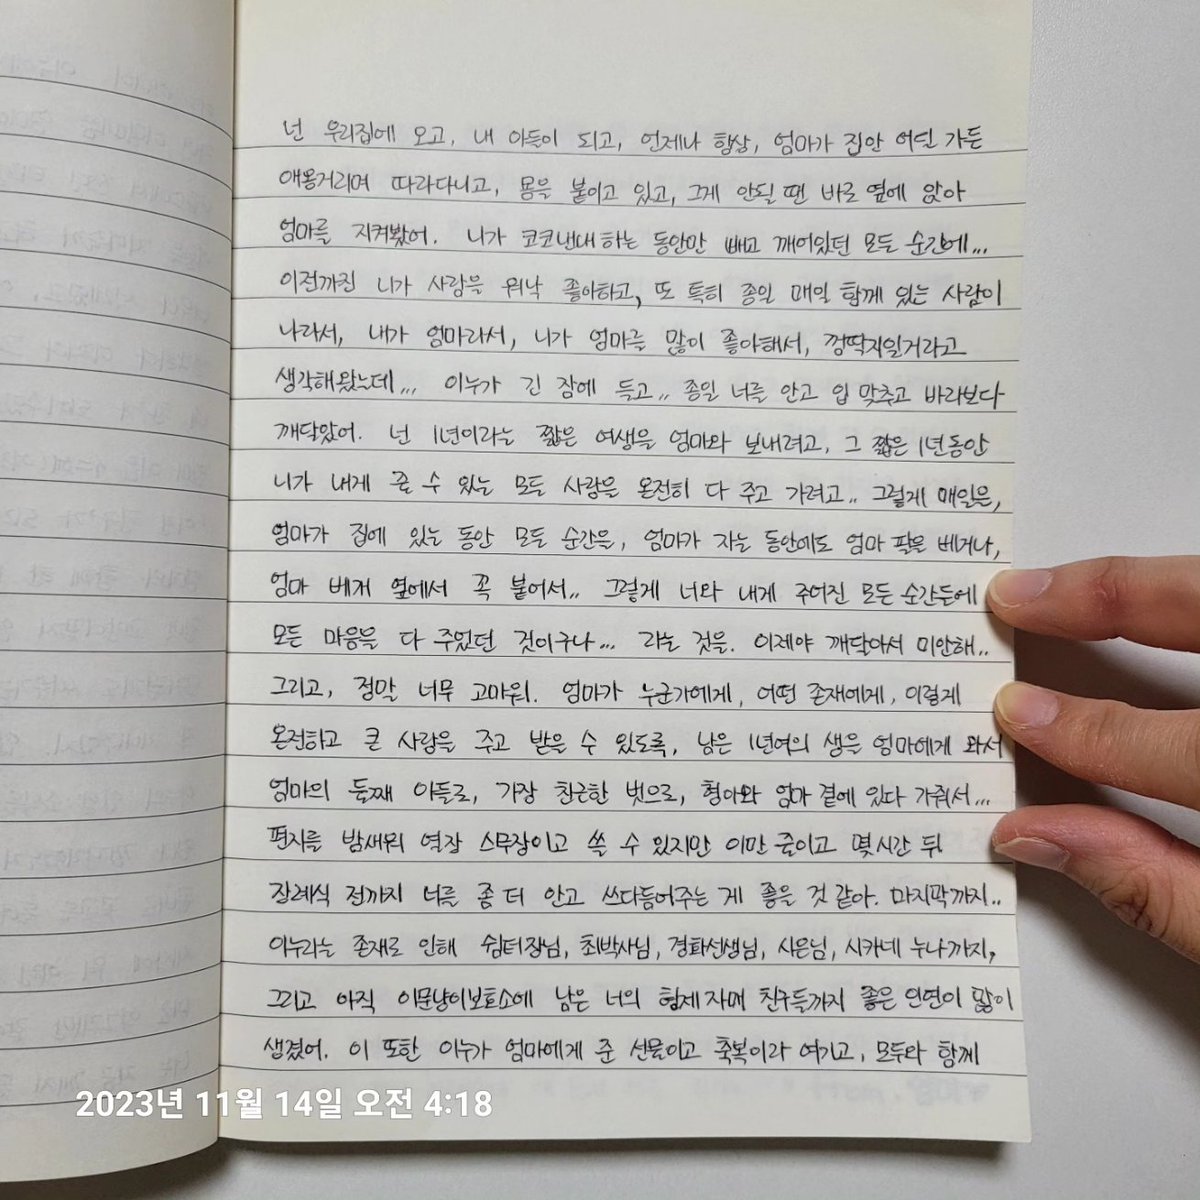 넌 우리집에 오고, 내 아들이 되고, 언제나 항상, 엄마가 집안 어딜 가든
애옹거리며 따라다니고, 몸을 붙이고 있고, 그게 안될 땐 바로 옆에 앉아
엄마를 지켜봤어. 니가 코코낸내 하는 동안만 빼고 깨어있던 모든 순간에...
이전까진 니가 사람을 워낙 좋아하고, 또 특히 종일 매일 함께 있는 사람이
나라서, 내가 엄마라서, 니가 엄마를 많이 좋아해서, 껌딱지일거라고
생각해왔는데... 이누가 긴 잠에 들고.. 종일 너를 안고 입 맞추고 바라보다
깨달았어. 넌 1년이라는 짧은 여생을 엄마와 보내려고, 그 짧은 1년동안
니가 내게 줄 수 있는 모든 사랑을 온전히 다 주고 가려고.. 그렇게 매일은,
엄마가 집에 있는 동안 모든 순간을, 엄마가 자는 동안에도 엄마 팔을 베거나,
엄마 베개 옆에서 꼭 붙어서.. 그렇게 너와 내게 주어진 모든 순간들에
모든 마음을 다 주었던 것이구나... 라는 것을. 이제야 깨달아서 미안해..
그리고, 정말 너무 고마워. 엄마가 누군가에게, 어떤 존재에게, 이렇게
온전하고 큰 사랑을 주고 받을 수 있도록, 남은 1년여의 생을 엄마에게 와서
엄마의 둘째 아들로, 가장 친근한 벗으로, 형아와 엄마 곁에 있다 가줘서...
편지를 밤새워 역장 스무장이고 쓸 수 있지만 이만 줄이고 몇시간 뒤
장례식 전까지 너를 좀 더 안고 쓰다듬어주는 게 좋을 것 같아. 마지막까지..
이누라는 존재로 인해 쉼터장님, 최박사님, 경화선생님, 시은님, 시카네 누나까지,
그리고 아직 이문냥이보호소에 남은 너의 형제 자매 친구들까지 좋은 인연이 많이
생겼어. 이 또한 이누가 엄마에게 준 선물이고 축복이라 여기고, 모두와 함께
2023년 11월 14일 오전 4:18